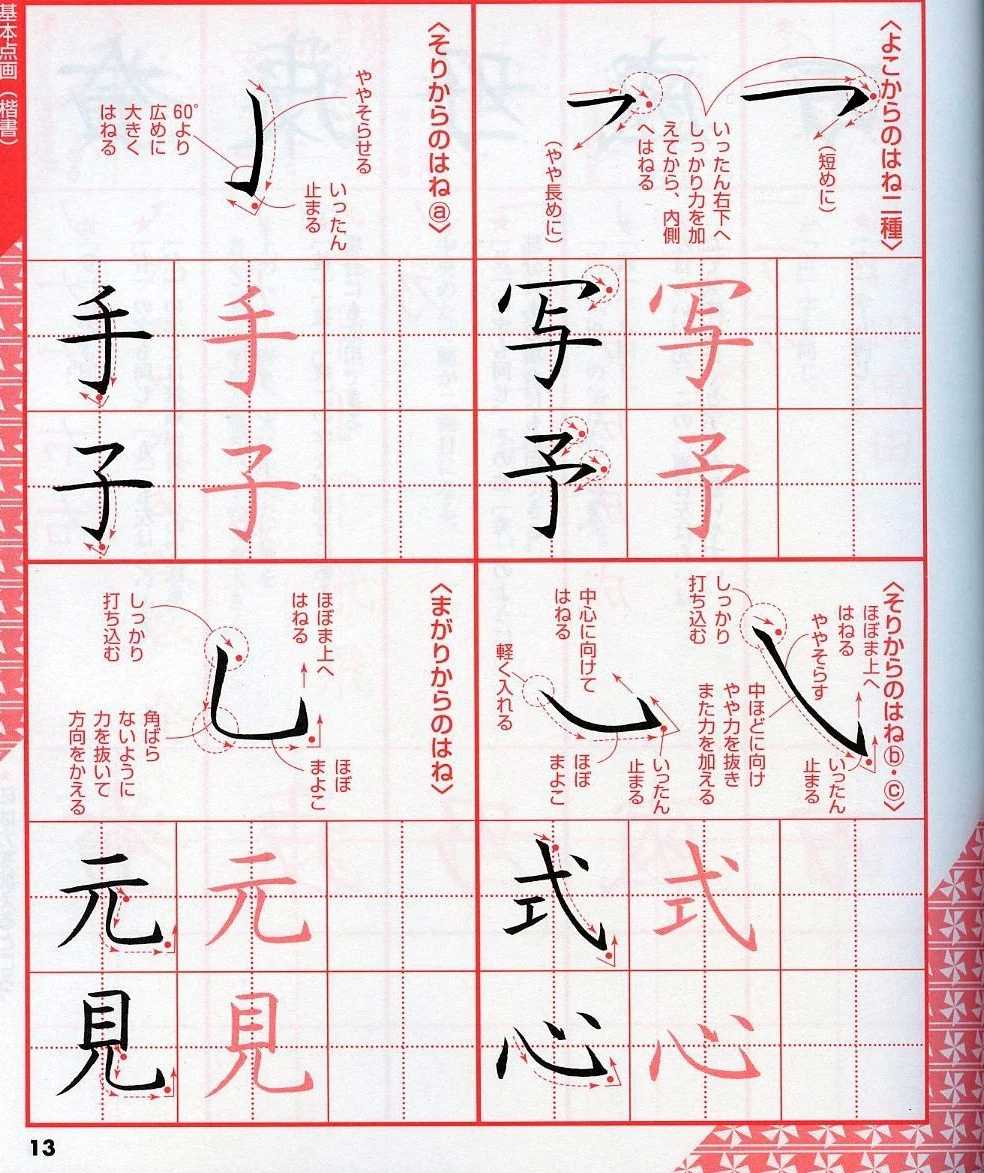 基本点画（楷書）
〈よこからのはね二種〉
（短めに）
いったん右下へ
しっかり力を加
えてから、内側
へはねる
（やや長めに）
写
写
予
予
〈そりからのはねⓐ〉
ややそらせる
いったん
止まる
60°より
広めに
大きく
はねる
手
手
子
子
〈そりからのはねⓑ・ⓒ〉
ほぼま上へ
はねる
ややそらす
しっかり
打ち込む
中ほどに向け
やや力を抜き
また力を加える
いったん
止まる
中心に向けて
はねる
軽く入れる
いったん
止まる
ほぼ
まよこ
式
式
心
心
〈まがりからのはね〉
ほぼま上へ
はねる
しっかり
打ち込む
ほぼ
まよこ
角ばら
ないように
力を抜いて
方向をかえる
元
元
見
見
13